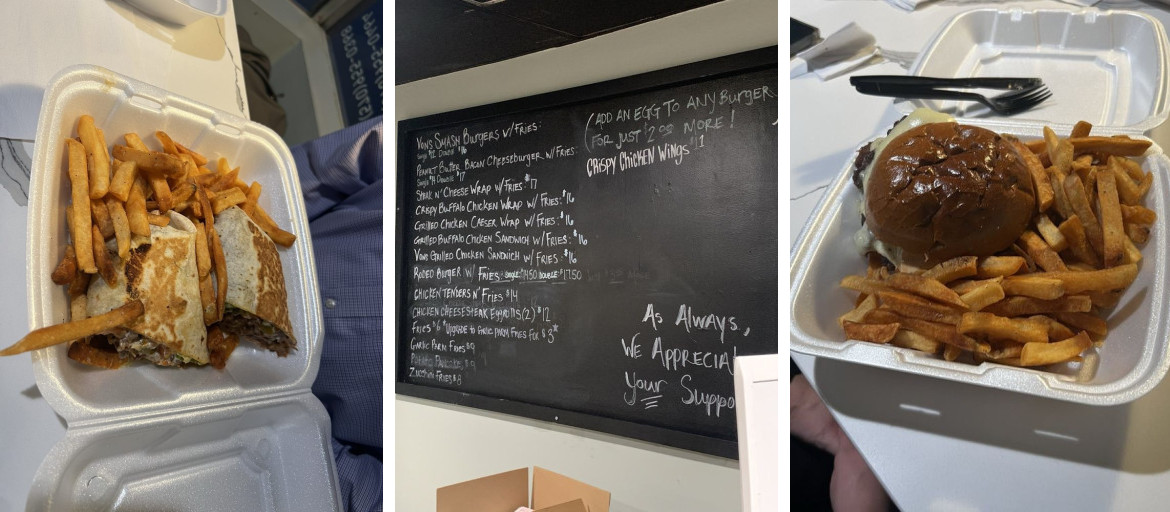 VONS SMASH BURGERS W/FRIES:
PEANUT BUTTER BACON CHEESEBURGER W/FRIES:
STEAK N' CHEESE WRAP W/FRIES: $17
CRISPY BUFFALO CHICKEN WRAP W/FRIES: $16
GRILLED CHICKEN CAESER WRAP W/FRIES: $16
GRILLED BUFFALO CHICKEN SANDWICH W/FRIES: $16
VONS GRILLED CHICKEN SANDWICH W/FRIES: $16
RODEO BURGER W/ FRIES
CHICKEN TENDERS N' FRIES $14
CHICKEN CHEESESTEAK EGGROLLS (2) $12
FRIES $6 *UPGRADE TO GARLIC PARM FRIES FOR $3*
GARLIC PARM FRIES $9
ZUCCHINI FRIES $8
(ADD AN EGG TO ANY BURGER
FOR JUST $2.00 MORE!
CRISPY CHICKEN WINGS $11
AS ALWAYS,
WE APPRECIA
YOUR SUPPO